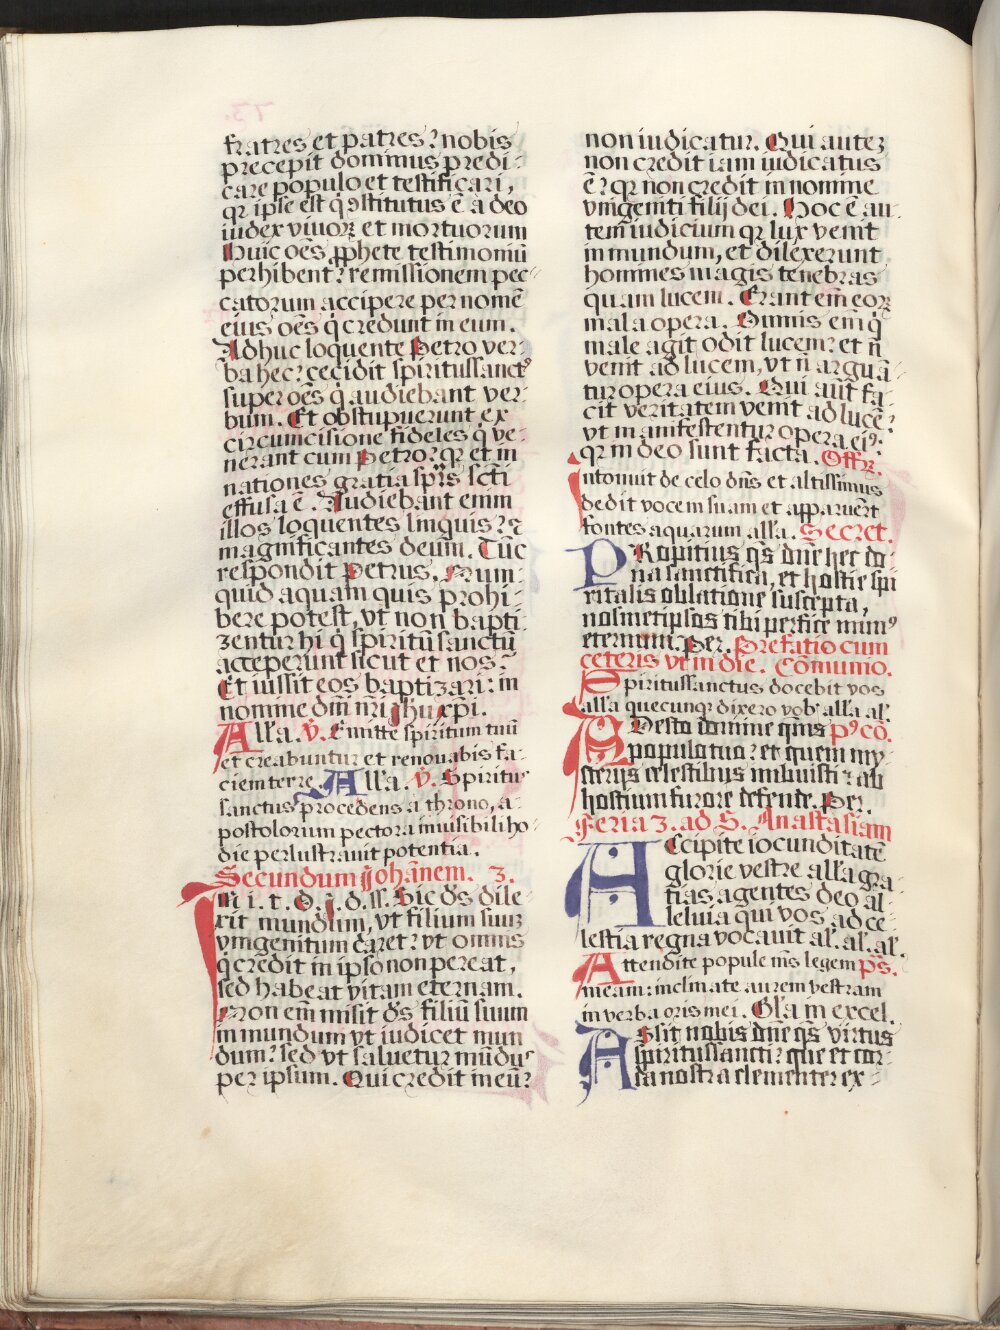 fratres et patres ? nobis
precepit dominus predi-
care populo et testificari,
qr ipse est q̇ ↄstitutus ē a deo
iudex viuoꝝ et mortuorum
Huic oēs ꝓphete testimoniū
perhibent ? remissionem pec-
catorum accipere per nomē
eius oēs q̇ credunt in eum.
Adhuc loquente Petro ver-
ba hec ? cecidit spiritussanctꝰ
super oēs q̇ audiebant ver-
bum. Et obstupuerunt ex
circumcisione fideles q̇ ve-
nerant cum Petro ? qr et in
nationes gratia spūs scti
effusa ē. Audiebant enim
illos loquentes linguis ? ⁊
magnificantes deum. Tūc
respondit Petrus. Num-
quid aquam quis prohi-
bere potest, vt non bapti-
zentur hi q̇ spiritū sanctū
acceperunt sicut et nos ?
Et iussit eos baptizari : in
nomine dn̄i nr̄i ihu xp̄i.
Alla. V̇. Emitte spiritum tuū
et creabuntur et renouabis fa-
ciem terre. Alla. V̇. Spiritus
sanctus procedens a throno, a-
postolorum pectora inuisibili ho-
die perlustrauit potentia.
Secundum Johānem. 3.
In i. t. D. i. d. ss. Sic ds̄ dile-
xit mundum, vt filium suuꝫ
vnigenitum daret ? vt omnis
q̇ credit in ipso non pereat,
sed habeat vitam eternam.
Non em̄ misit ds̄ filiū suum
in mundum vt iudicet mun-
dum ? sed vt saluetur mūdus
per ipsum. Qui credit in eū ?
non iudicatur. Qui auteꝫ
non credit iam iudicatus
ē ? qr non credit in nomine
vnigeniti filij dei. Hoc ē au-
tem iudicium qr lux venit
in mundum, et dilexerunt
homines magis tenebras
quam lucem. Erant em̄ eoꝝ
mala opera. Omnis em̄ q̇
male agit odit lucem ? et n̄
venit ad lucem, vt n̄ arguā-
tur opera eius. Qui aūt fa-
cit veritatem venit ad lucē ?
vt manifestentur opera eiꝰ :
qr in deo sunt facta. Offr.
Intonuit de celo dn̄s et altissimus
dedit vocem suam et apparuerūt
fontes aquarum alla. Secret.
PRopitius qs̄ dn̄e hec do-
na sanctifica, et hostie spi-
ritalis oblatione suscepta,
nosmetipsos tibi perfice munꝰ
eternum. Per. Prefatio cum
ceteris vt in die. Cōmunio.
Spiritussanctus docebit vos
alla quecunqꝫ dixero vob̄ alla al̄.
ADesto domine qm̄s pꝰcō.
populo tuo ? et quem my-
sterijs celestibus imbuisti ? ab
hostium furore defende. Per.
Feria 3. ad S. Anastasiam
ACcipite iocunditatē
glorie vestre alla gra-
tias agentes deo al-
leluia qui vos ad ce-
lestia regna vocauit al̄. al̄. al̄.
Attendite popule m̄s legem ps̄.
meam : inclinate aurem vestram
in verba oris mei. Gla in excel.
ASsit nobis dn̄e qs̄ virtus
spiritussancti ? que et cor-
da nostra clementer ex-